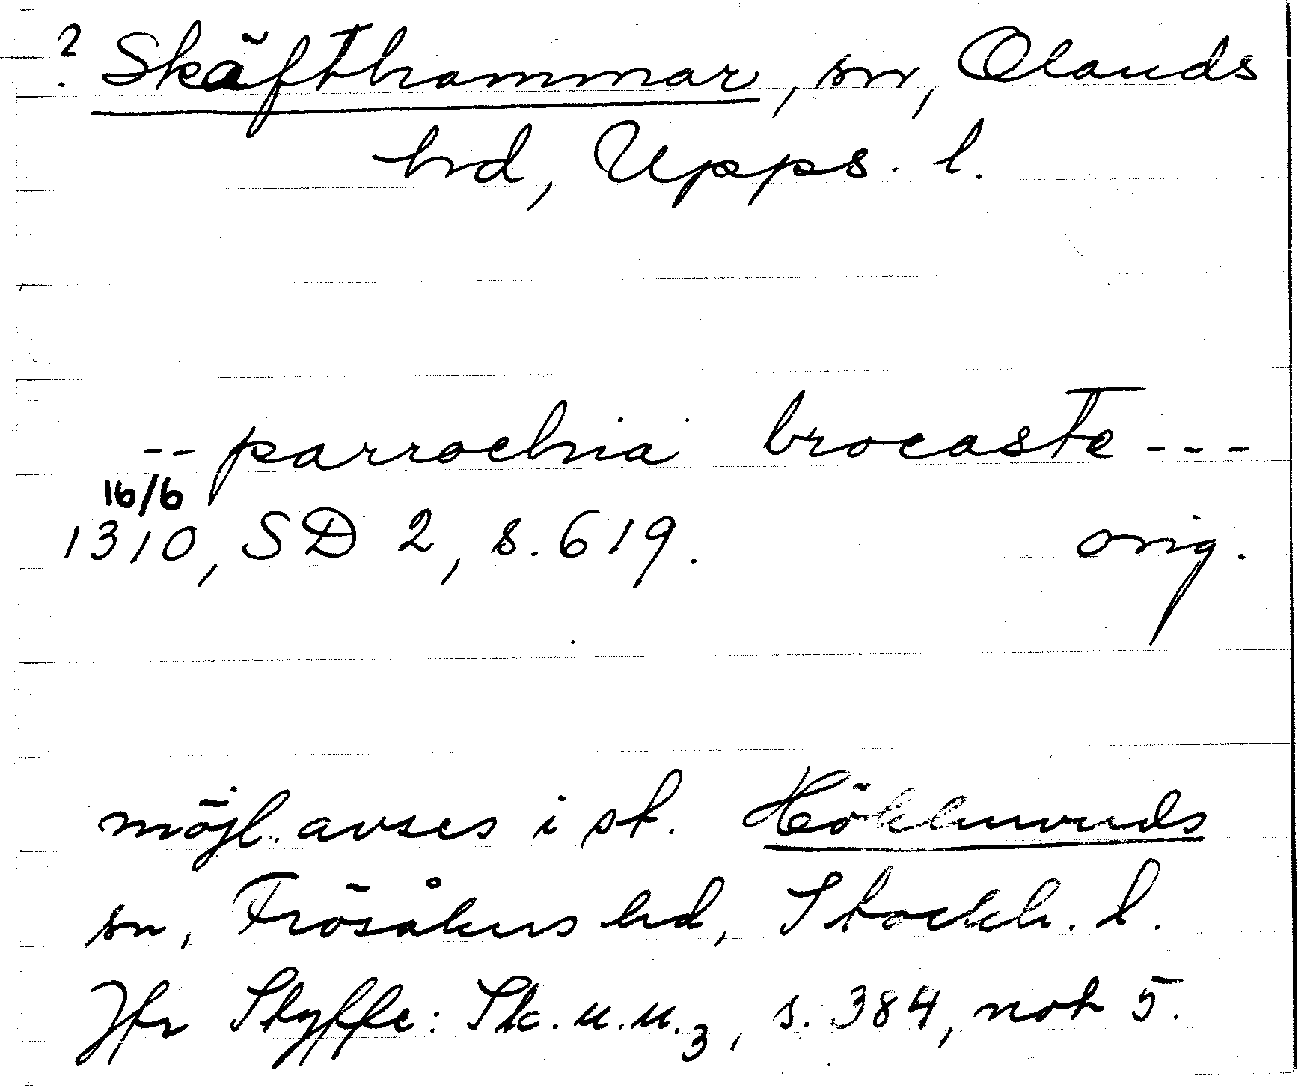 ? Skäfthammar, sn, Olands
hd, Upps. l.
-- parrochia brocaste ---
16/6
1310, SD 2, s. 619. orig.
möjl. avses i st. Hökhuvuds
sn, Frösåkers hd, Stockh. l.
Jfr Styffe: Sk. u. u.3, s. 384, not 5.